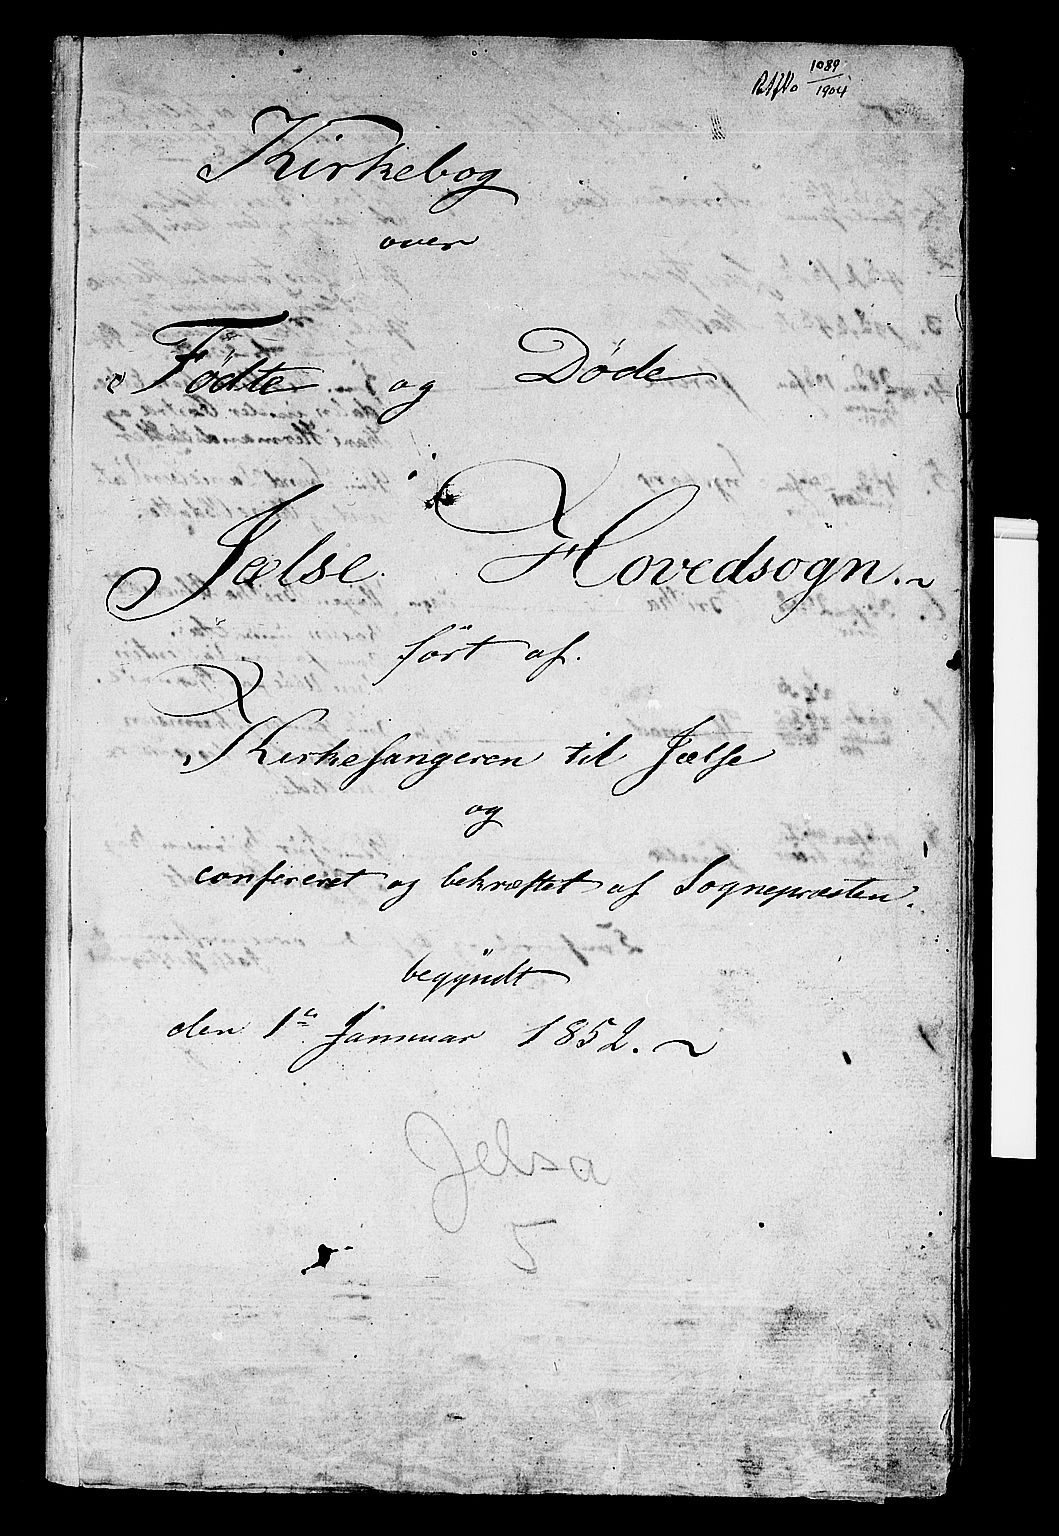 1089
1904
Kirkebog
over
Fødte og Døde
i
Jælse Hovedsogn.
ført af.
Kirkesangeren til Jælse
og
confereret og bekræftet af Sognepræsten.
begÿndt
den 1ste Januar 1852.
Jelsa
5